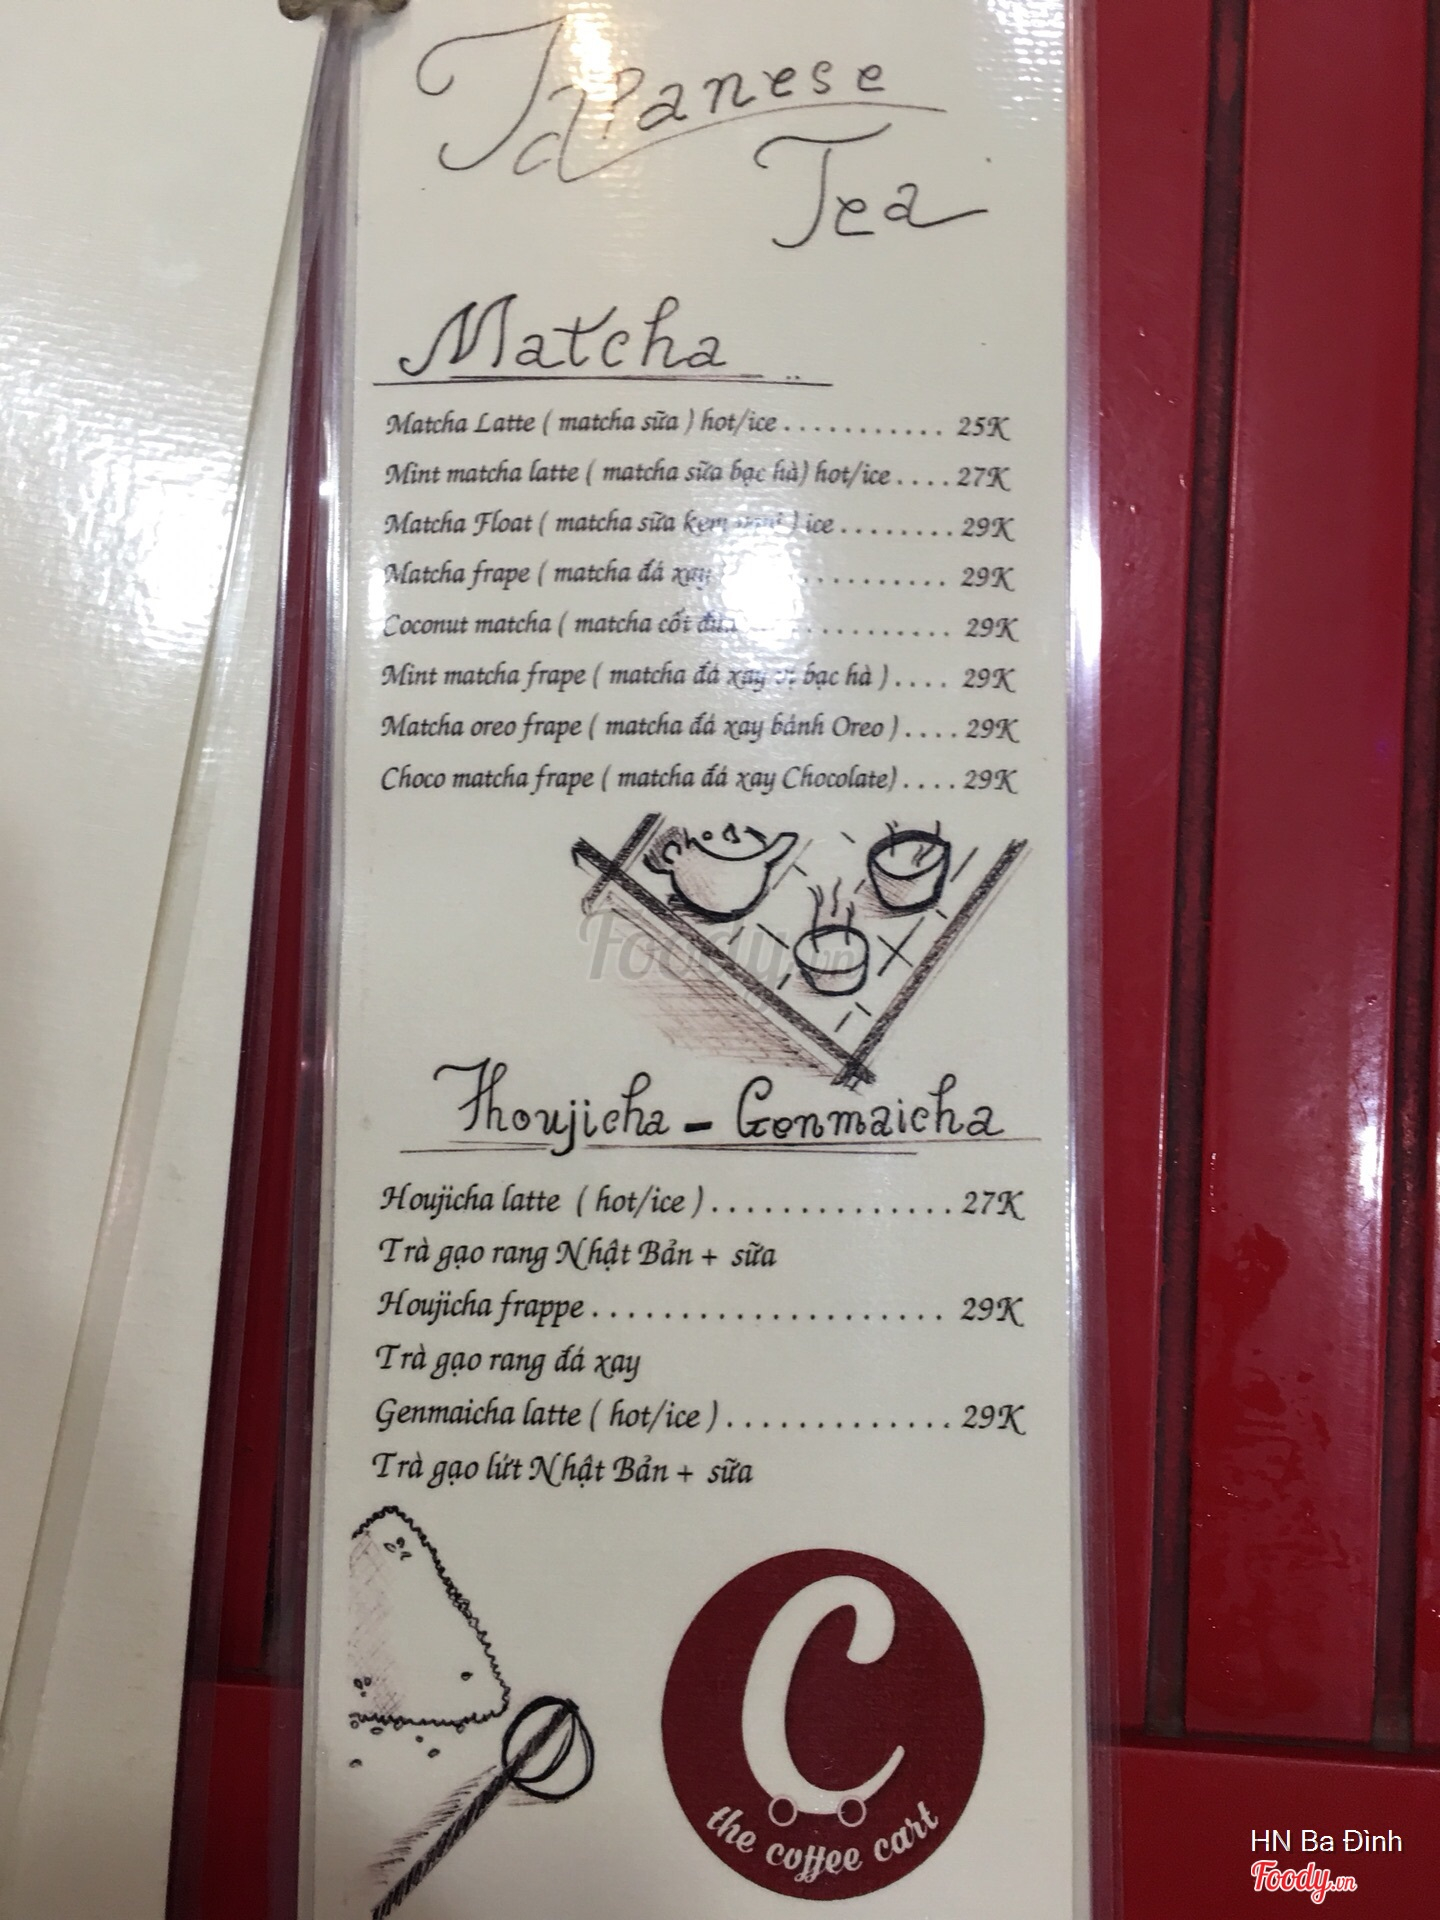 Japanese
Tea
Matcha
Matcha Latte ( matcha sữa ) hot/ice . . . . . . . . . . . 25K
Mint matcha latte ( matcha sữa bạc hà) hot/ice . . . . 27K
Matcha Float ( matcha sữa kem ) ice . . . . . . . . 29K
Matcha frape ( matcha đá xay . . . . . . . . . . 29K
Coconut matcha ( matcha cốt dừa . . . . . . . . . . 29K
Mint matcha frape ( matcha đá xay vị bạc hà ) . . . . 29K
Matcha oreo frape ( matcha đá xay bánh Oreo ) . . . . 29K
Choco matcha frape ( matcha đá xay Chocolate) . . . . 29K
Foody.vn
Houjicha - Genmaicha
Houjicha latte ( hot/ice ) . . . . . . . . . . . . . . 27K
Trà gạo rang Nhật Bản + sữa
Houjicha frappe . . . . . . . . . . . . . . . . . . . . 29K
Trà gạo rang đá xay
Genmaicha latte ( hot/ice ) . . . . . . . . . . . . . 29K
Trà gạo lứt Nhật Bản + sữa
C
the coffee cart
HN Ba Đình
Foody.vn